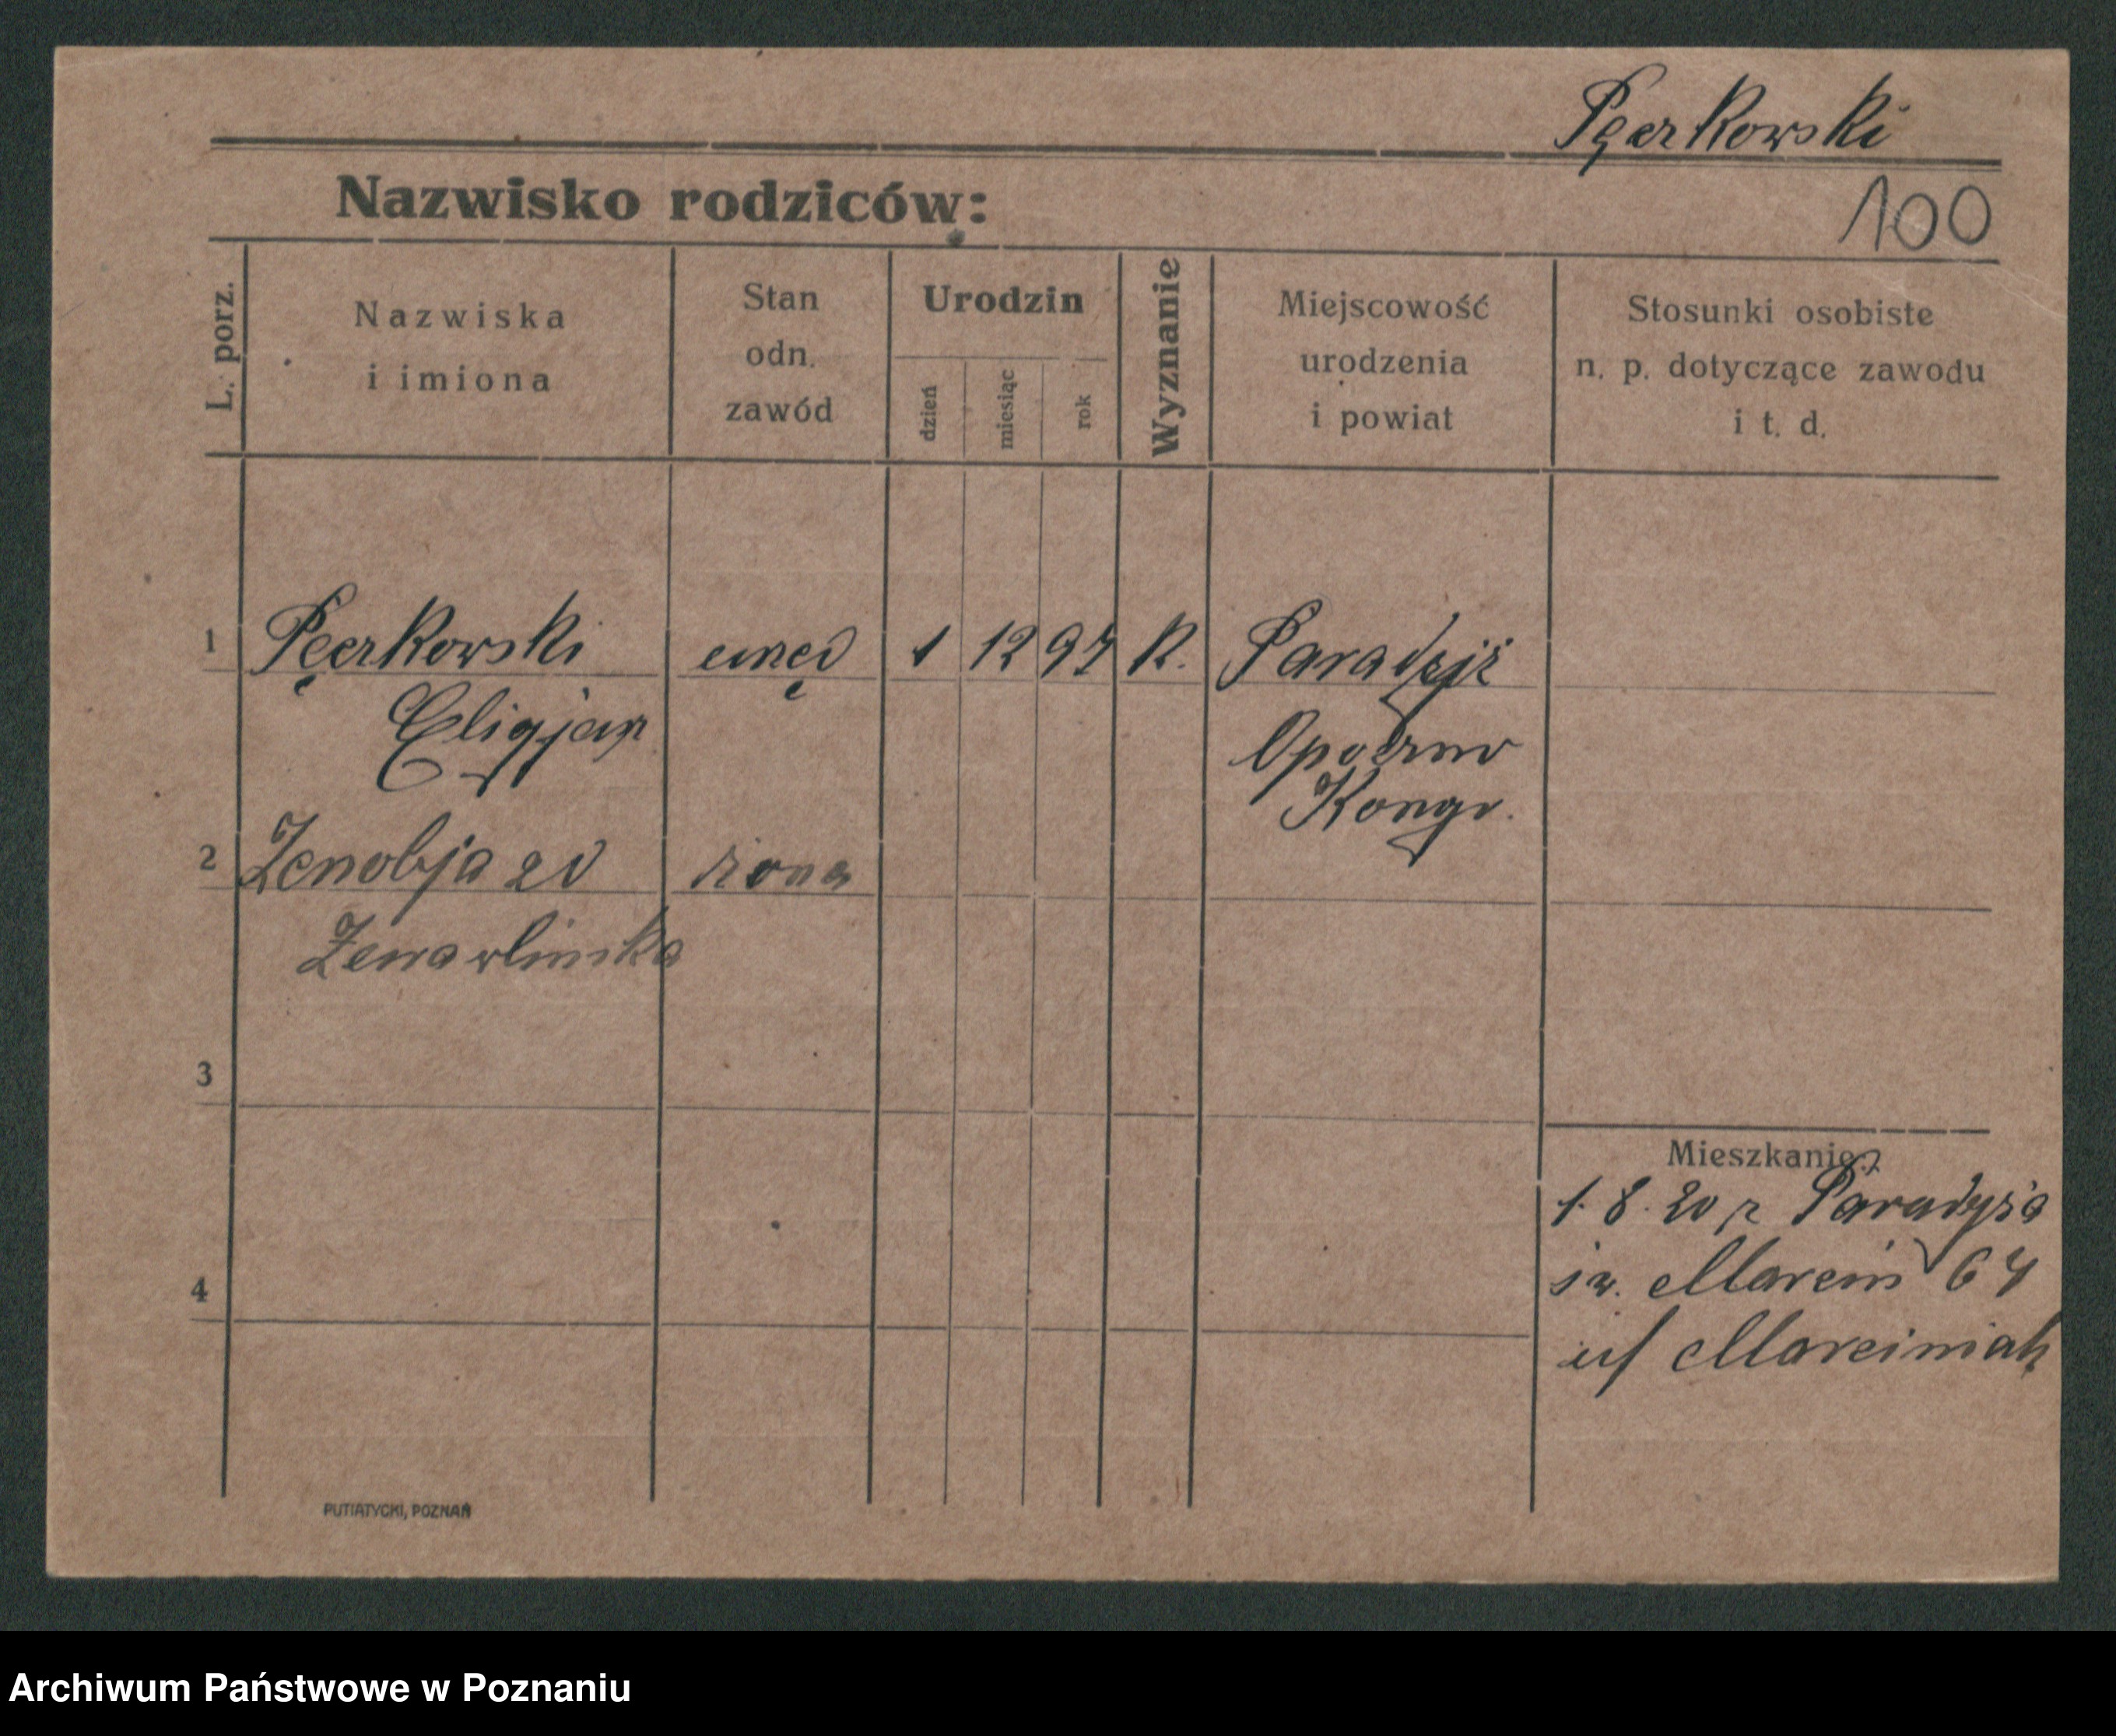 Pęczkowski
100
Nazwisko rodziców:
L. porz.
Nazwiska
i imiona
Stan
odn.
zawód
Urodzin
dzień
miesiąc
rok
Wyznanie
Miejscowość
urodzenia
i powiat
Stosunki osobiste
n. p. dotyczące zawodu
i t. d.
1 Pęczkowski urzęd 1 12 97 R. Paradyż
Opoczno
Kongr.
2 Zenobja zd żona
3
Mieszkanie:
1. 8. 20 z Paradyża
św. Marcin 67
u/ Marciniak
4
PUTIATYCKI, POZNAŃ
Archiwum Państwowe w Poznaniu